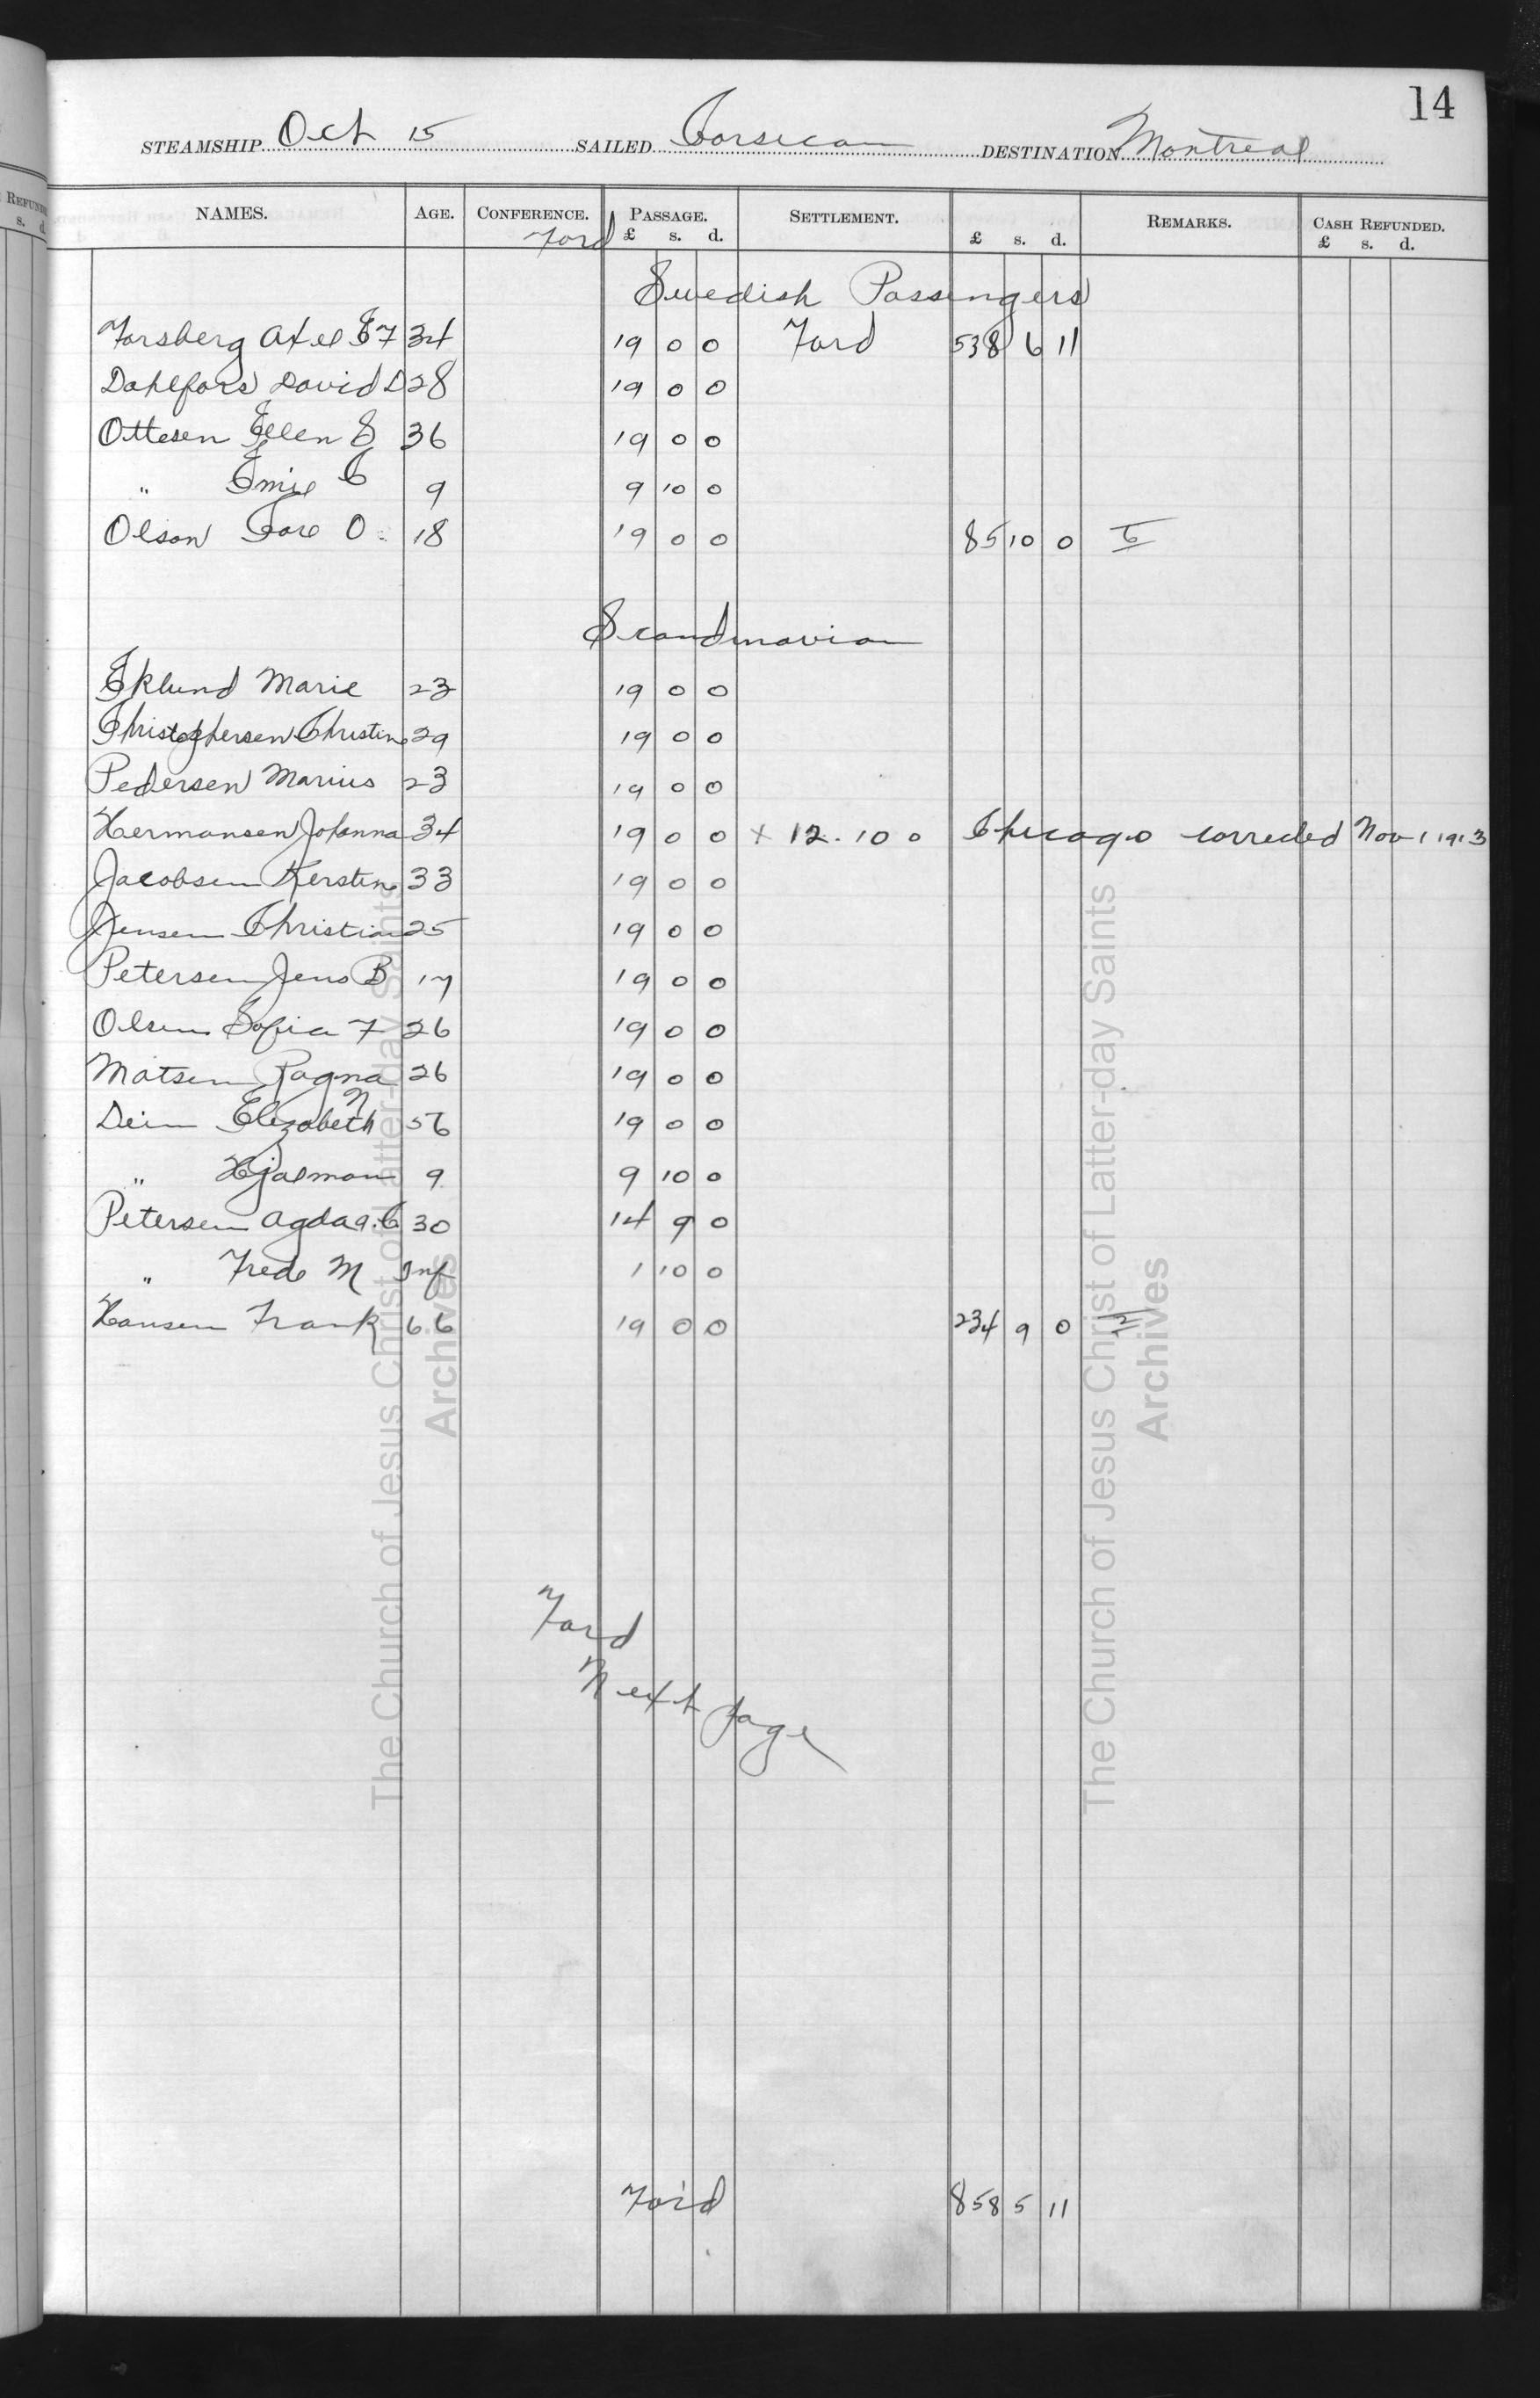 14
STEAMSHIP Oct 15 SAILED Corsican DESTINATION Montreal
NAMES. AGE. CONFERENCE. PASSAGE. SETTLEMENT. REMARKS. CASH REFUNDED.
Ford £ s. d. £ s. d. £ s. d.
Swedish Passengers
Forsberg Axel E F 34 19 0 0 Ford 538 6 11
Dahlfors David D 28 19 0 0
Ottesen Ellen E 36 19 0 0
" Emil C 9 9 10 0
Olson Carl O. 18 19 0 0 85 10 0
Scandinavian
Eklund Marie 23 19 0 0
Christophersen Christine 29 19 0 0
Pedersen Marius 23 19 0 0
Hermansen Johanna 34 19 0 0 x 12. 10 0 Chicago corrected Nov 1 1913
Jacobsen Kerstine 33 19 0 0
Jensen Christian 25 19 0 0
Petersen Jens B 17 19 0 0
Olsen Sofia F 26 19 0 0
Matsen Ragna 26 19 0 0
Elizabeth N 56 19 0 0
" Hjalmar 9 9 10 0
Petersen Agda A. C 30 14 9 0
" Frede M Inf 1 10 0
Hansen Frank 66 19 0 0 234 9 0 12
Ford
Next page
For'd 858 5 11
The Church of Jesus Christ of Latter-day Saints
Archives
The Church of Jesus Christ of Latter-day Saints
Archives
REFUNDED
s. d.